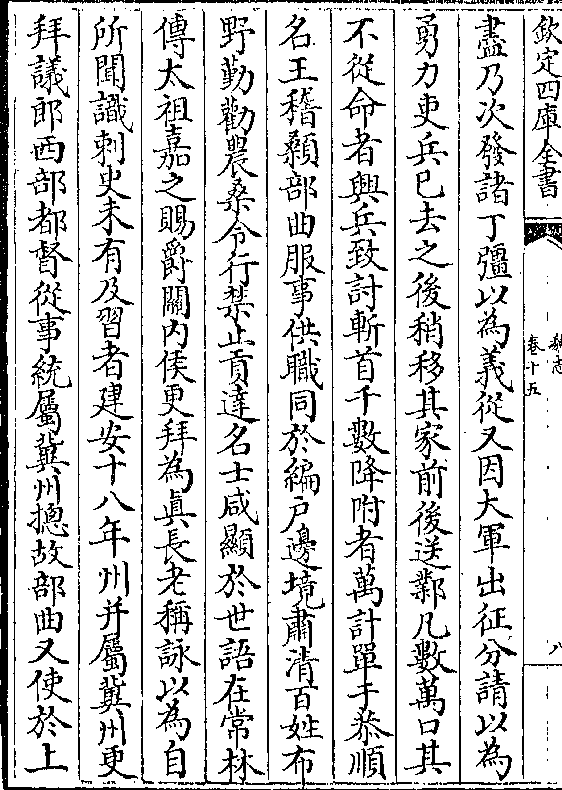 欽定四庫全書
魏志
卷十五
八
盡乃次發諸丁彊以為義從又因大軍出征分請以為
勇力吏兵已去之後稍移其家前後送鄴凡數萬口其
不從命者興兵致討斬首千數降附者萬計單于恭順
名王稽顙部曲服事供職同於編戶邊境肅清百姓布
野勤勸農桑令行禁止貢達名士咸顯於世語在常林
傳太祖嘉之賜爵關內侯更拜為真長老稱詠以為自
所聞識刺史未有及習者建安十八年州并屬冀州更
拜議郎西部都督從事統屬冀州摠故部曲又使於上